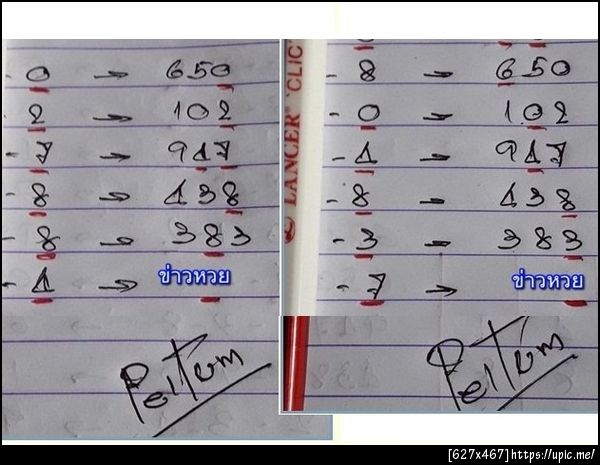 - 0 → 650
- 2 → 102
- 7 → 917
- 8 → 138
- 8 → 383
- 1 → ข่าวหวย
PeiTum
LANCER CLIC
- 8 → 650
- 0 → 102
- 1 → 917
- 8 → 138
- 3 → 383
- 7 → ข่าวหวย
PeiTum
[627x467]https://upic.me/